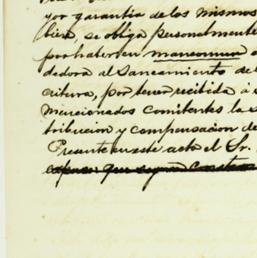 yor garantia de los mismos
bien, se obliga personalmente
por haber en mancomun o
dedora al Saneamiento de
critura, por tener recibida á s
mencionados comitentes la s
tribucion y compensacion de
Presente en este acto el Sr.